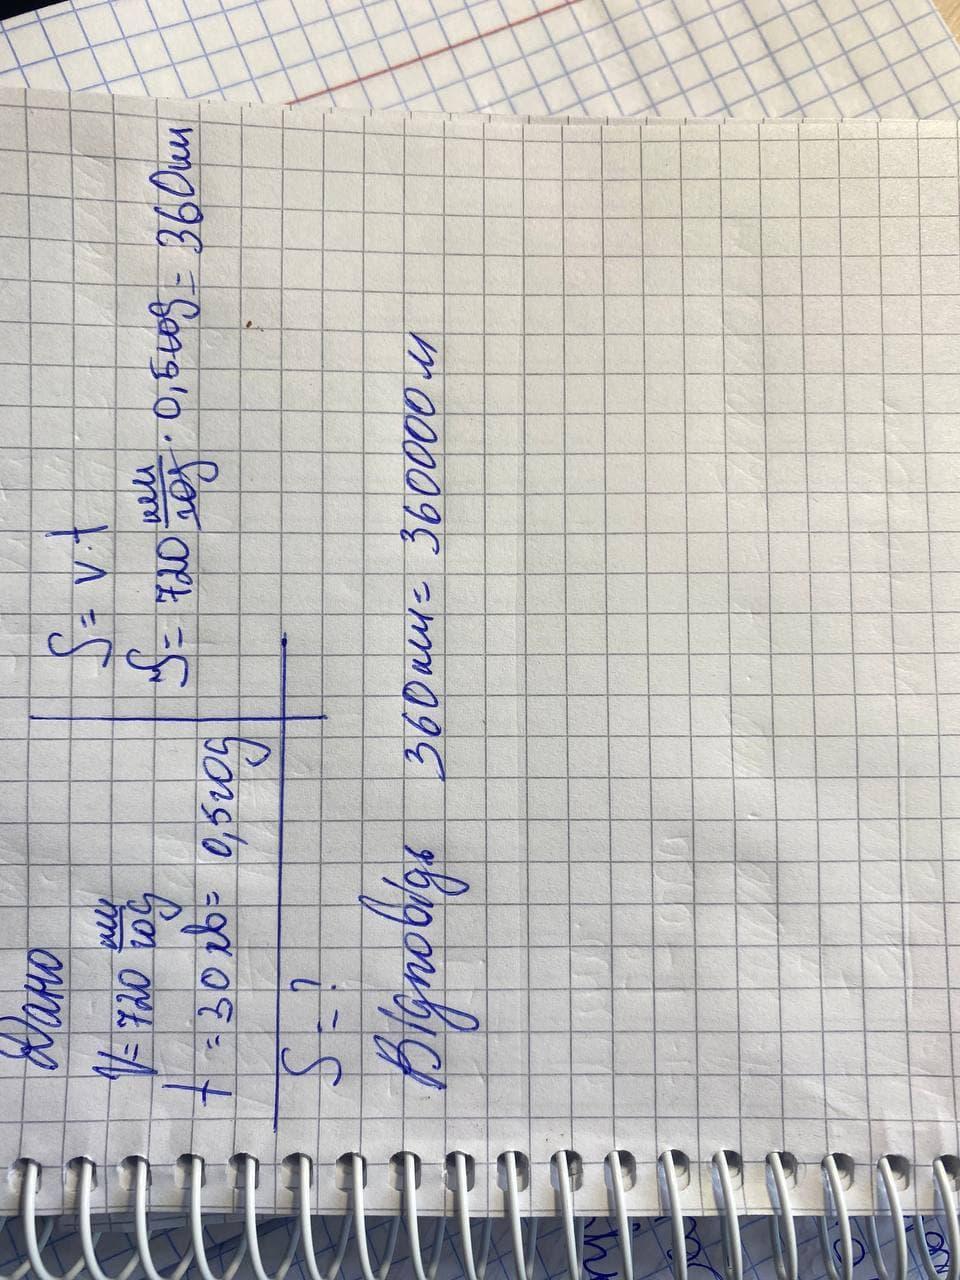 Дано
V = 720 км/год
t = 30 хв = 0,5 год
S = ?
S = v · t
S = 720 км/год · 0,5 год = 360 км
Відповідь 360 км = 360000 м